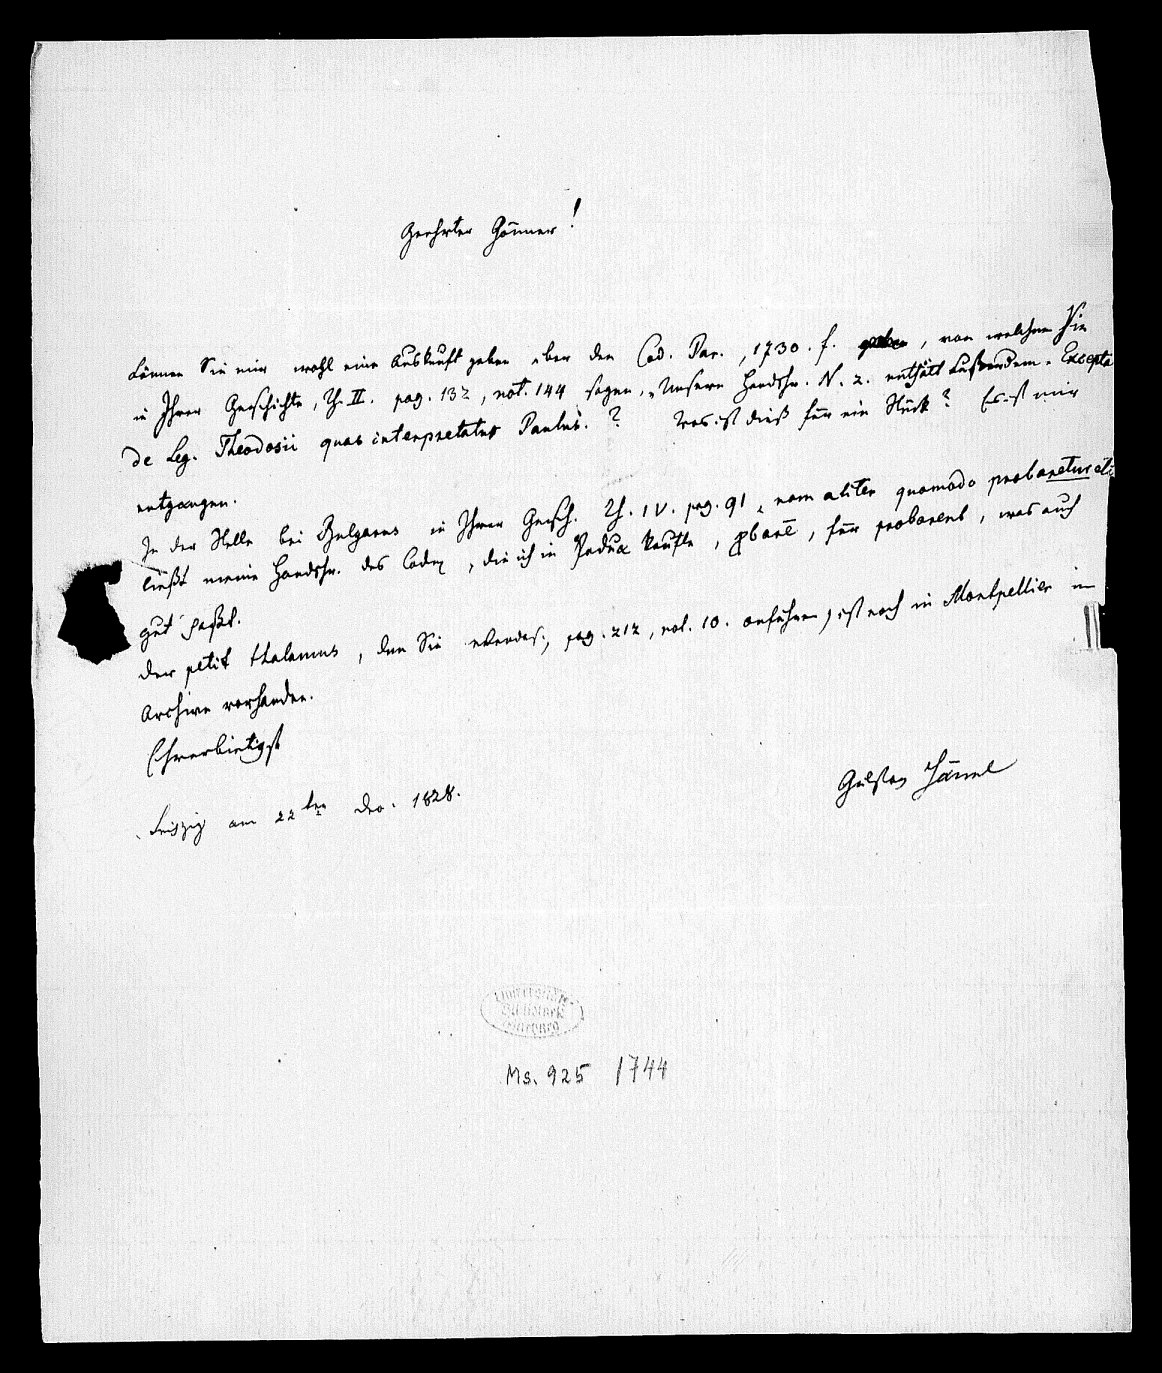 Geehrter Gönner!
Können Sie mir wohl eine Auskunft geben über den Cod. Par., 1730. f. , von welchem Sie
in Ihrer Geschichte, Th. II. pag. 132, not. 144 sagen, „Unsere Handschr. N. 2. enthält außerdem „Excepta
de Leg. Theodosii quas interpretatus Paulus.“? Was ist dieß für ein Stück? Es ist mir
entgangen.
In der Stelle bei Bulgarus in Ihrer Gesch. Th. IV. pag. 91 „nam aliter quomodo probaretur
ließt meine Handschr. des Codex, die ich in Padua kaufte, ꝓbarē, für probarent, was auch
gut paßt.
Der petit thalamus, den Sie ebendas., pag. 212, not. 10. anführen, ist noch in Montpellier im
Archive vorhanden.
Ehrerbietigst
Gustav Hänel
Leipzig am 22ten Dec. 1828.
Universitäts-
Bibliothek
Marburg
Ms. 925 /744